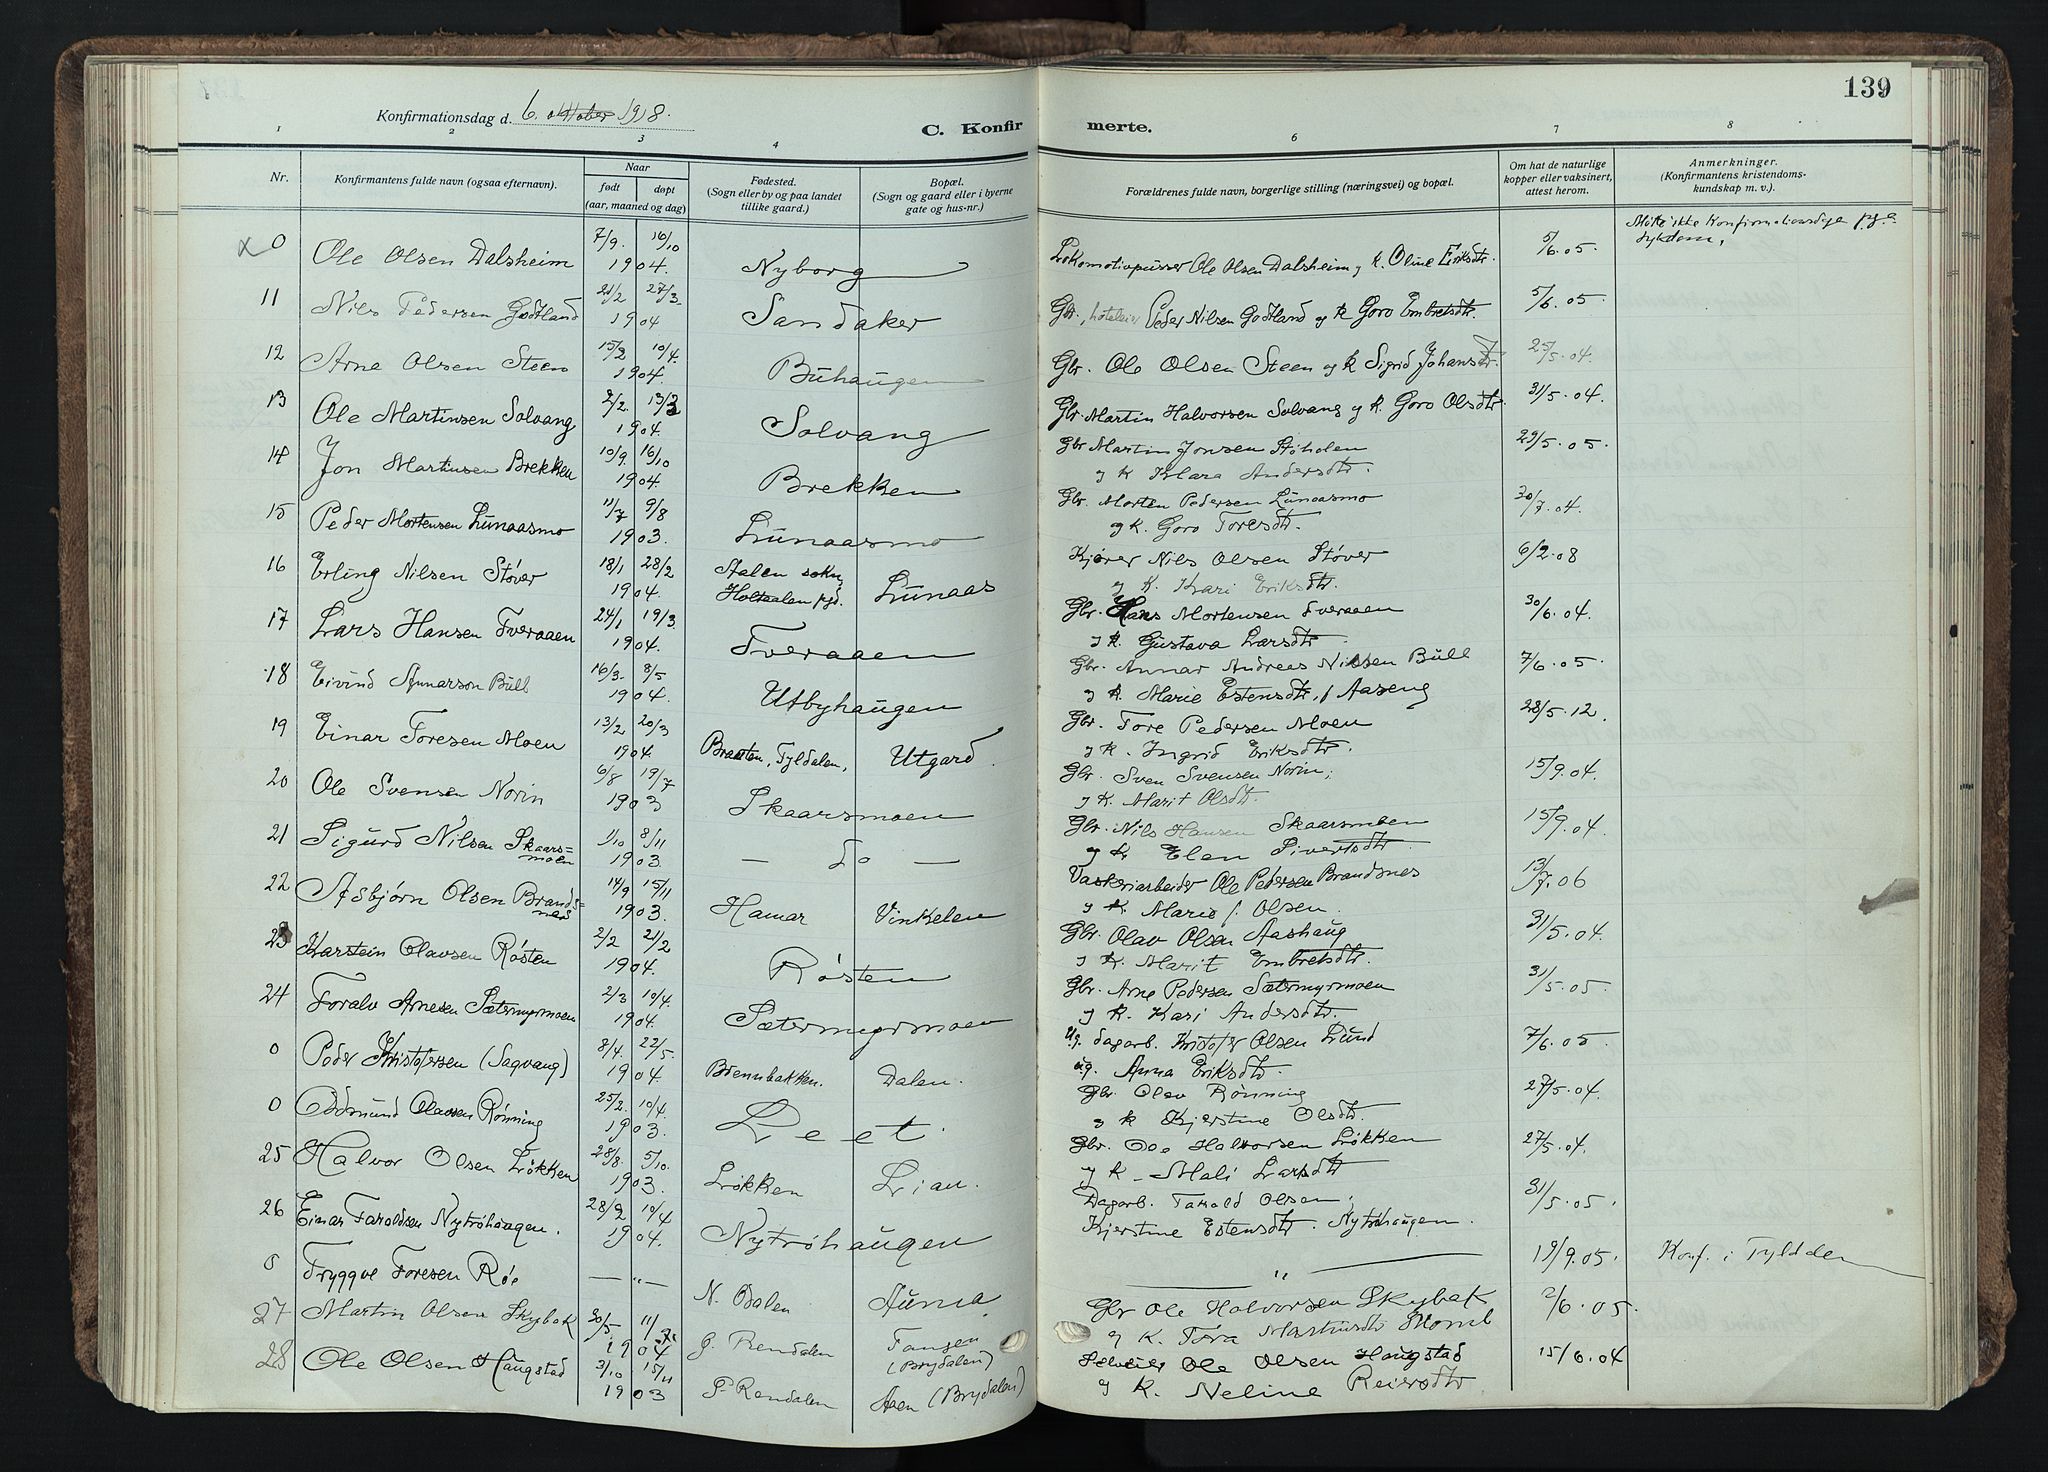 139
Konfirmationsdag d. 6. oktober 1918.
C. Konfirmerte.
1 2 3 4 6 7 8
Nr.
Konfirmantens fulde navn (ogsaa efternavn).
Naar
født døpt
(aar, maaned og dag)
Fødested.
(Sogn eller by og paa landet
tillike gaard.)
Bopæl.
(Sogn og gaard eller i byerne
gate og hus-nr.)
Forældrenes fulde navn, borgerlige stilling (næringsvei) og bopæl.
Om hat de naturlige
kopper eller vaksinert,
attest herom.
Anmerkninger.
(Konfirmantens kristendoms-
kundskap m. v.).
x 0 Ole Olsen Dalsheim 7/9. 16/10 1904. Nyborg Lokomotivpusser Ole Olsen Dalsheim og k. Oline Eriksdtr. 5/6.05. Møtte ikke Konfirmationsdagen p.gr.a.
sykdom.
11 Nils Pedersen Godtland 21/2 27/3 1904 Sandaker Gbr., hoteleier Peder Nilsen Godtland og k Goro Embretsdtr. 5/6.05.
12 Arne Olsen Steen 15/2 10/4. 1904. Buhaugen Gbr. Ole Olsen Steen og k Sigrid Johansdtr. 25/5.04.
13 Ole Martinsen Solvang 2/2. 13/3 1904. Solvang Gbr. Martin Halvorsen Solvang og k. Goro Olsdtr. 31/5.04.
14 Jon Martinsen Brekken 10/9. 16/10 1904. Brekken Gbr Martin Jonsen Støholen 29/5.05.
og k Klara Andersdtr.
15 Peder Mortensen Lunaasmo 11/7 9/8 1903. Lunaasmo Gbr. Morten Pedersen Lunaasmo 30/7.04.
og k. Goro Toresdtr.
16 Erling Nilsen Støver 18/1 28/2 1904. Aalen sokn, Holtaalen pgd. Lunaas Kjører Nils Olsen Støver 6/2.08
og k. Kari Eriksdtr.
17 Lars Hansen Tveraaen 24/1 19/3. 1904. Tveraaen Gbr. Hans Mortensen Tveraaen 30/6.04.
og k. Gustava Larsdtr
18 Eivind Annarson Bull 16/3. 8/5 1904. Utbyhaugen Gbr. Annar Andreas Nilssen Bull 7/6.05.
og k. Marie Estensdtr, f. Aaseng
19 Einar Toresen Moen 13/2 20/3 1904. Braaten, Tyldalen, Utgard. Gbr. Tore Pedersen Moen 28/5.12.
og k. Ingrid Eriksdtr.
20 Ole Svensen Norin 6/8 19/7 1903 Skaarsmoen Gbr. Sven Svensen Norin, 15/9.04.
og k. Marit Olsdtr.
21 Sigurd Nilsen Skaars=
moen 1/10 8/11 1903. — do — Gbr. Nils Hansen Skaarsmoen 15/9.04.
og k Elen Sivertsdtr
22 Asbjørn Olsen Brands=
nes 14/9 15/11 1903. Hamar Vinkelen Vaskeriarbeider Ole Pedersen Brandsnes 13/7.06
og k Marie f. Olsen.
23 Karstein Olavsen Røsten 2/2 21/2 1904. Røsten Gbr. Olav Olsen Aashaug 31/5.04.
og k. Marit Embretsdtr.
24 Toralv Arnesen Sætermyrmoen 2/3 10/4. 1904. Sætermyrmoen Gbr. Arne Pedersen Sætermyrmoen 31/5.05.
og k. Kari Andersdtr.
0 Peder Kristofersen (Sagvang) 8/4. 22/5. 1904. Brennbakken. Dalen. Ug. dagarb. Kristofer Olsen Lund 7/6.05.
ug. Anna Eriksdtr.
0 Oddmund Olavsen Rønning 25/2. 10/4. 1903. Leet. Gbr Olav Rønning 27/5.04.
og k Kjerstine Olsdtr.
25 Halvor Olsen Løkken 28/8. 5/10. 1903. Løkken Lian. Gbr. Ole Halvorsen Løkken 27/5.04.
og k. Mali Larsdtr
26 Einar Taroldsen Nytrøhaugen. 28/2 10/4 1904. Nytrøhaugen Dagarb. Tarald Olsen. 31/5.05.
Kjerstine Estensdtr. Nytrøhaugen.
0 Tryggve Toresen Røe — " — N. Odalen Auma " 19/9.05. Konf. i Tylddalen
27 Martin Olsen Skybak 30/5. 11/7. 1904 G. Rendalen Tangen
(Brydalen) Gbr Ole Halvorsen Skybak 2/6.05.
og k. Tora Martinsdtr
28 Ole Olsen Haugstad 3/10 15/11 1903 S. Rendalen Aaen (Brydalen) Selveier Ole Olsen Haugstad 15/6.04
og k. Neline Reiersdtr